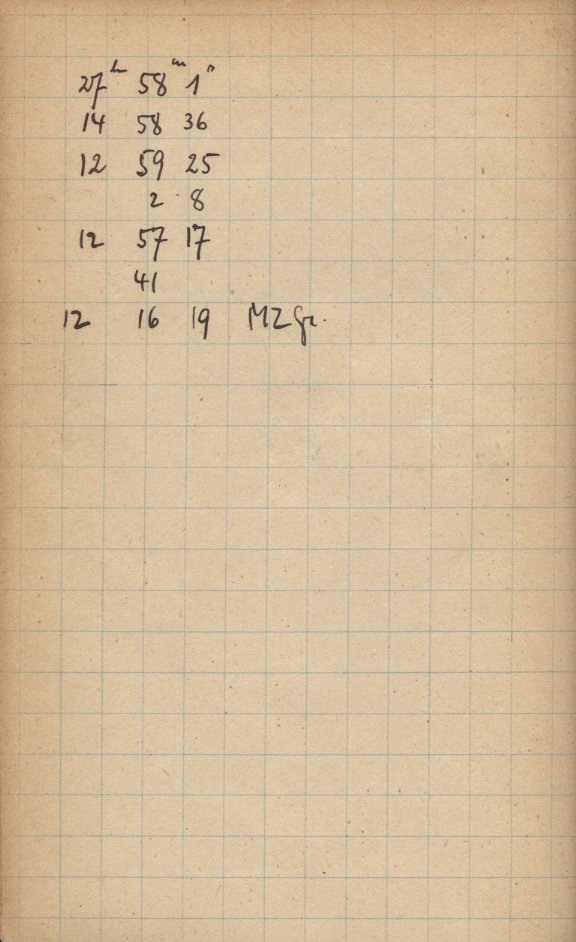 27ʰ 58ᵐ 1"
14 58 36
12 59 25
2 8
12 57 17
41
12 16 19 MZ Gr.